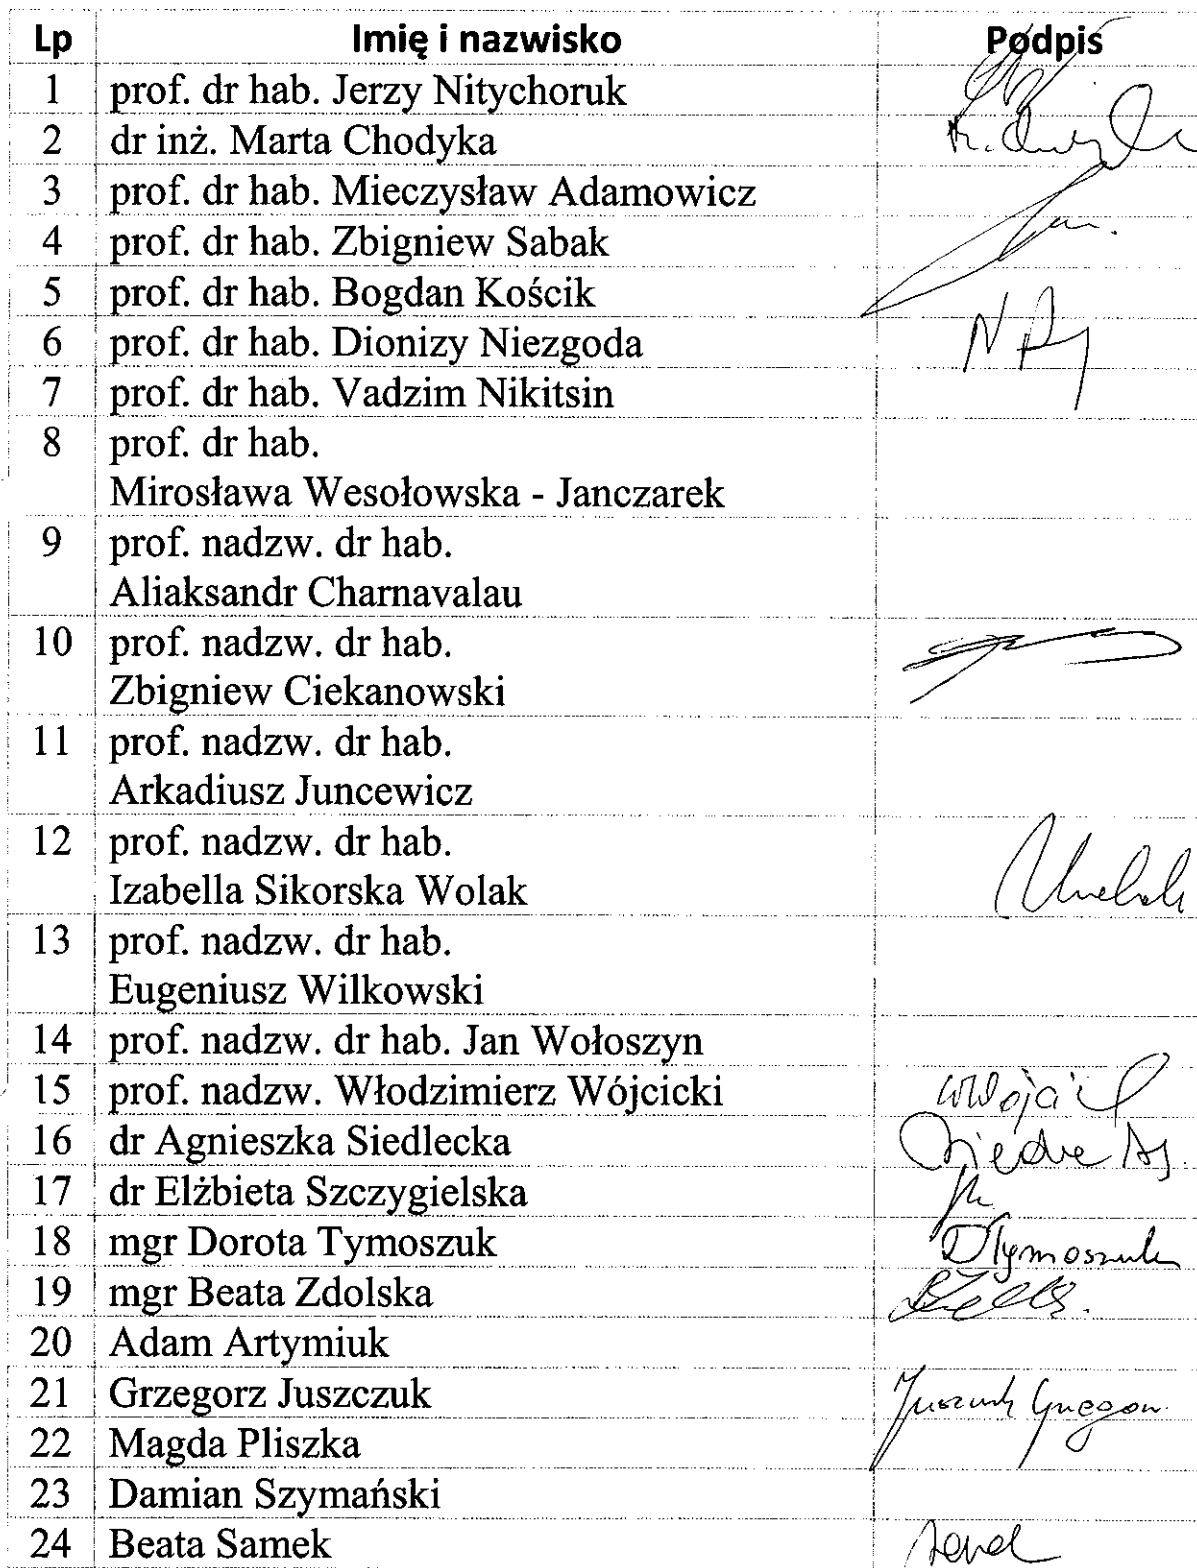 Lp Imię i nazwisko Podpis
1 prof. dr hab. Jerzy Nitychoruk
2 dr inż. Marta Chodyka
3 prof. dr hab. Mieczysław Adamowicz
4 prof. dr hab. Zbigniew Sabak
5 prof. dr hab. Bogdan Kościk
6 prof. dr hab. Dionizy Niezgoda
7 prof. dr hab. Vadzim Nikitsin
8 prof. dr hab.
Mirosława Wesołowska - Janczarek
9 prof. nadzw. dr hab.
Aliaksandr Charnavalau
10 prof. nadzw. dr hab.
Zbigniew Ciekanowski
11 prof. nadzw. dr hab.
Arkadiusz Juncewicz
12 prof. nadzw. dr hab.
Izabella Sikorska Wolak
13 prof. nadzw. dr hab.
Eugeniusz Wilkowski
14 prof. nadzw. dr hab. Jan Wołoszyn
15 prof. nadzw. Włodzimierz Wójcicki
16 dr Agnieszka Siedlecka
17 dr Elżbieta Szczygielska
18 mgr Dorota Tymoszuk DTymoszuk
19 mgr Beata Zdolska
20 Adam Artymiuk
21 Grzegorz Juszczuk
22 Magda Pliszka
23 Damian Szymański
24 Beata Samek